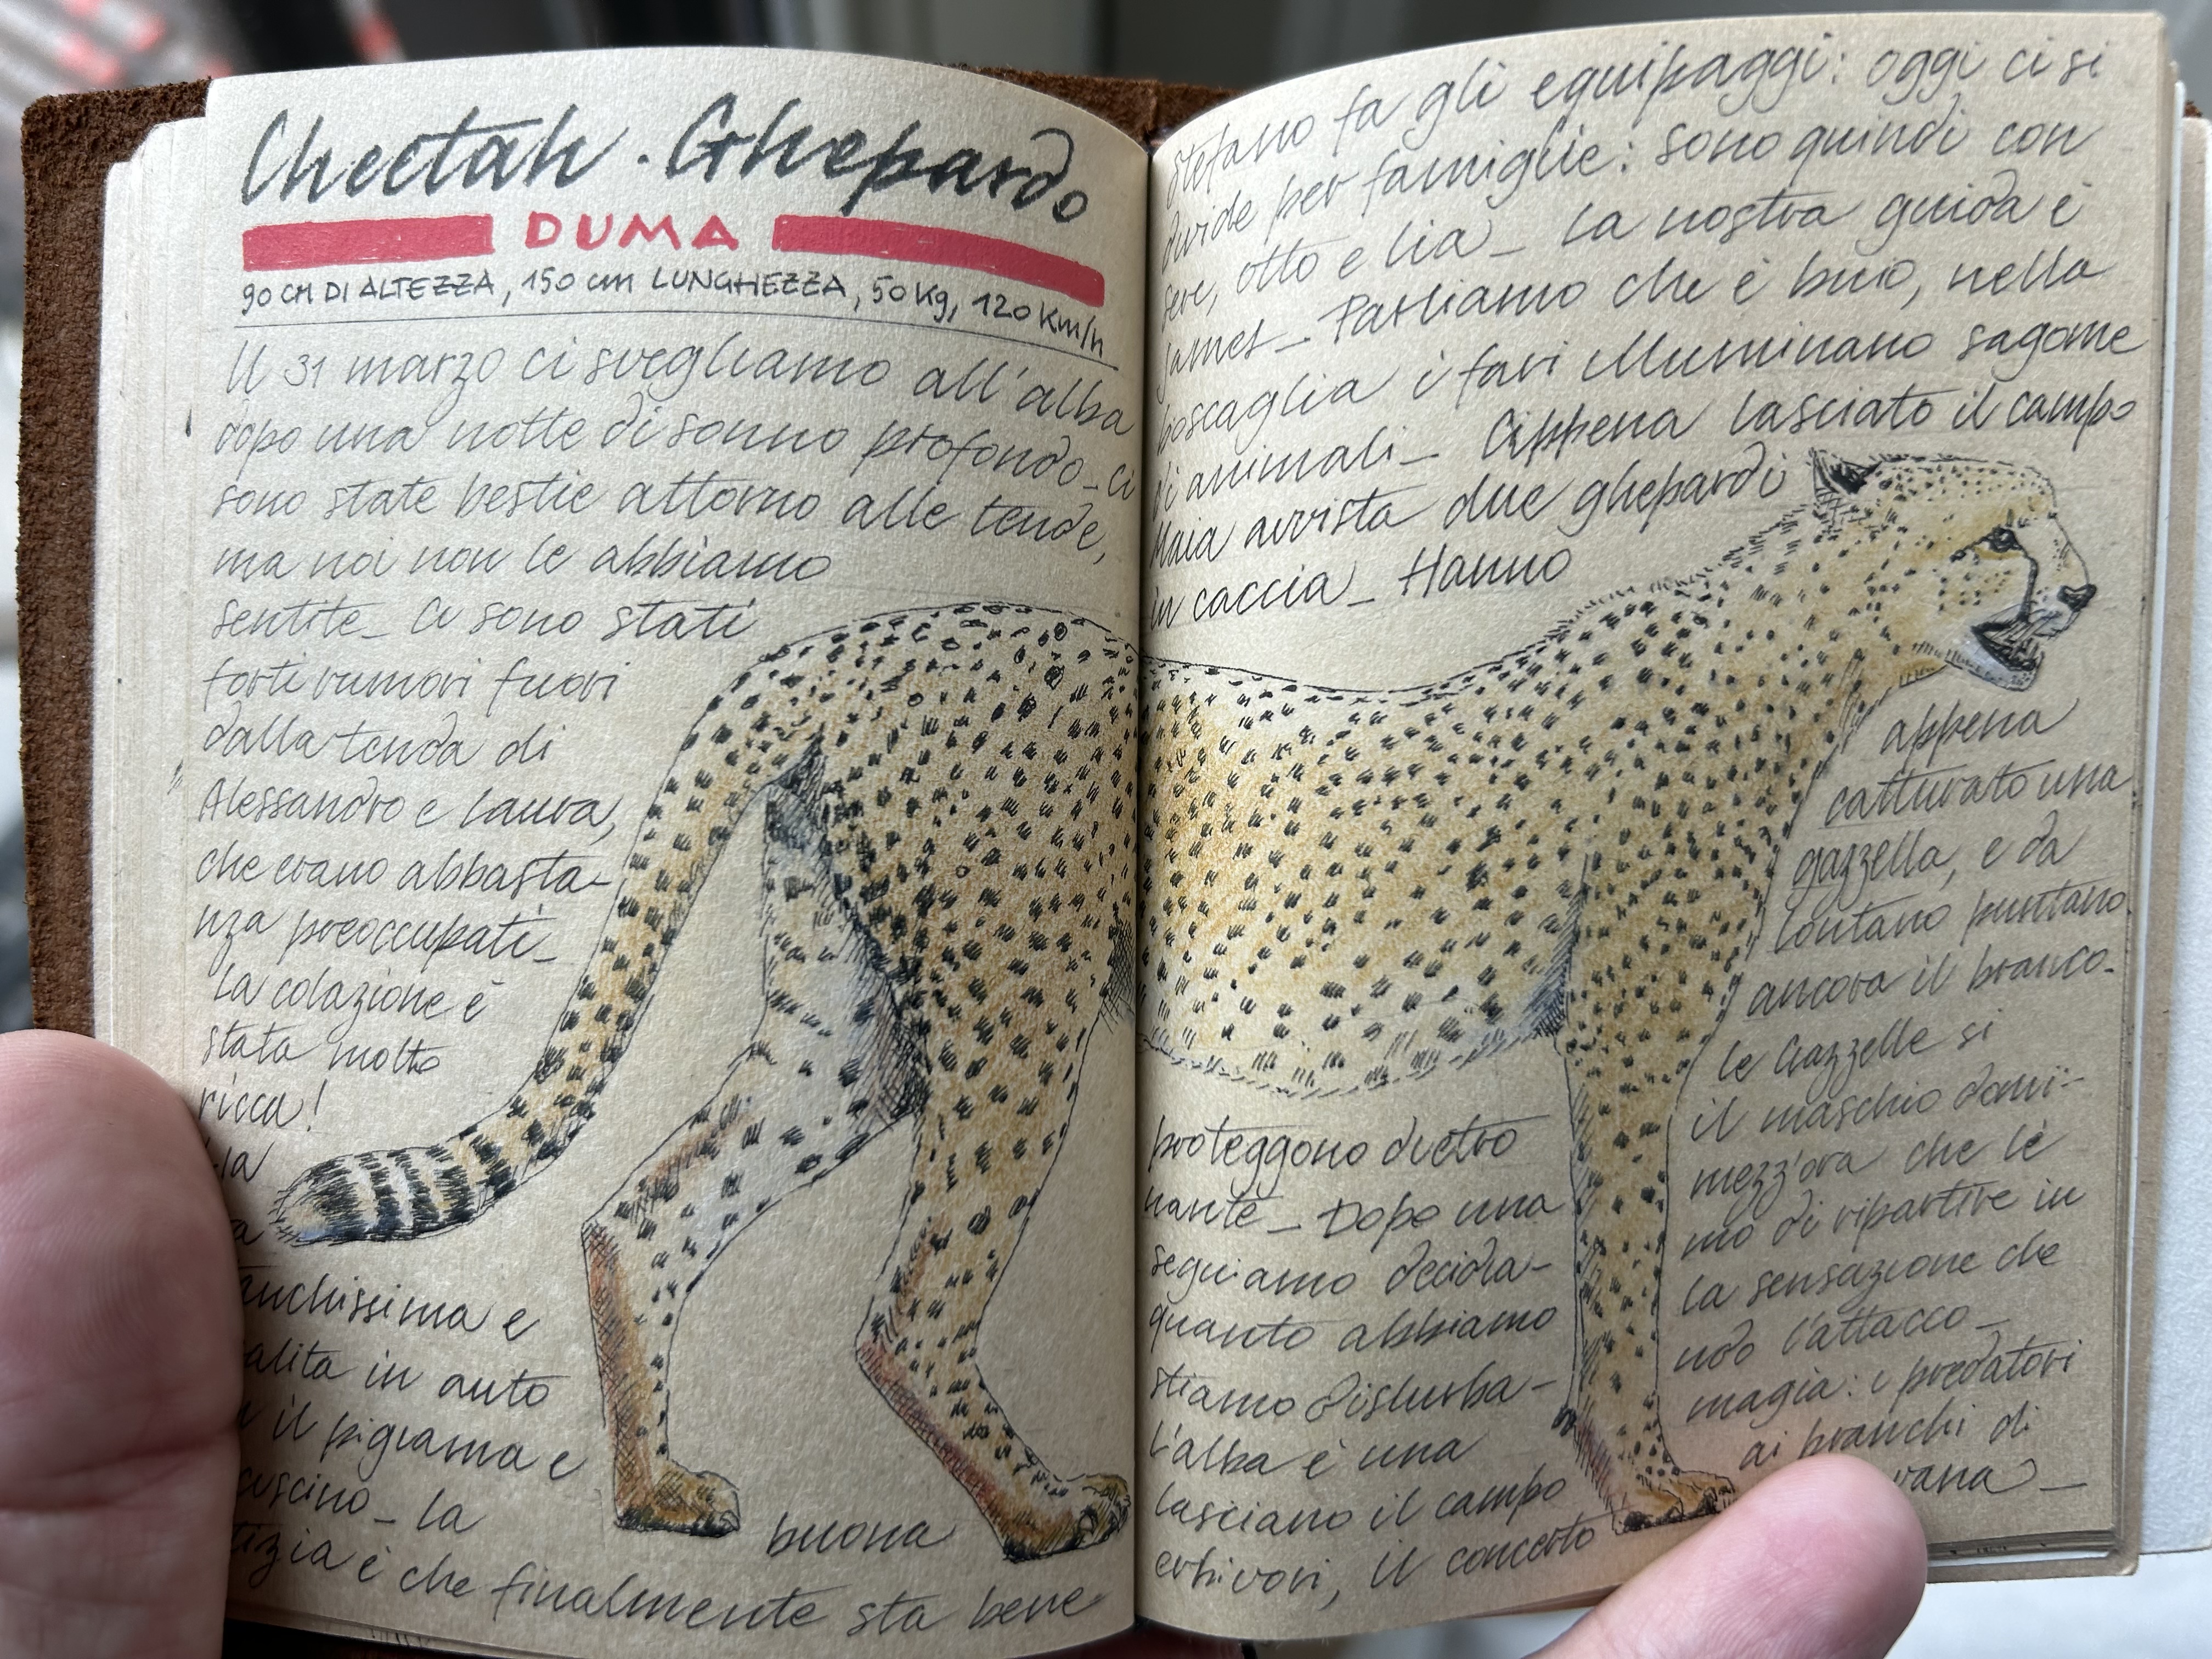 Cheetah. Ghepardo
DUMA
90 CM DI ALTEZZA, 150 cm LUNGHEZZA, 50 Kg, 120 Km/h
Il 31 marzo ci svegliamo all'alba
dopo una notte di sonno profondo_ ci
sono state bestie attorno alle tende,
ma noi non le abbiamo
sentite_ Ci sono stati
forti rumori fuori
dalla tenda di
Alessandro e Laura,
che erano abbasta-
nza preoccupati_
La colazione è
stata molto
ricca!
anchissima e
alita in auto
il pigiama e
cuscino_ La
buona
tizia è che finalmente sta bene
Stefano fa gli equipaggi: oggi ci si
divide per famiglie: sono quindi con
seve, otto e lia_ La nostra guida è
James_ Partiamo che è buio, nella
boscaglia i fari illuminano sagome
di animali_ Appena lasciato il campo
Maia avvista due ghepardi
in caccia_ Hanno
appena
catturato una
gazzella, e da
lontano puntano
ancora il branco.
le Gazzelle si
proteggono dietro il maschio domi-
nante_ Dopo una mezz'ora che le
seguiamo decidia- mo di ripartire in
quanto abbiamo la sensazione che
stiamo disturba- ndo l'attacco_
L'alba è una magia: i predatori
lasciano il campo ai branchi di
erbivori, il concerto vana_